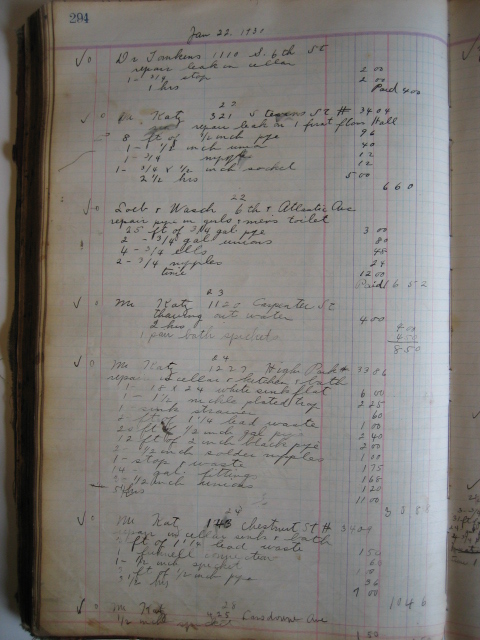 294
Jan 22, 1931
Dr Tomkens 1110 S. 6th St
repair leak in cellar
1 - 3/4 stop 2 00
1 hrs 2 00
Paid 4 00
22
Katz 321 S St # 3404
repair leak in 1 first floor Hall
8 ft of 1/2 inch pipe 96
1 - 1 1/8 inch union 40
1 - 3/4 nipple 12
1 - 3/4 x 1/2 inch socket 12
2 1/2 hrs 5 00
6 60
22
Loeb & Wasch 6th & Atlantic Ave
repair pipe in girls & mens toilet
25 ft of 3/4 gal pipe 3 00
2 - 3/4 gal unions 80
4 - 3/4 ells 48
2 - 3/4 nipples 24
time 12 00
Paid 16 52
23
Mr Katz 1120 Carpenter St
thawing out water
2 hrs 4 00
1 pair bath spickets 4 50
8 50
24
Mr Katz 1227 High Park # 3386
repair in cellar & kitchen & bath
1 - 18 x 24 white sink flat 6 00
1 - 1 1/2 nickle plated trap 2 25
1 sink strainer 60
2 ft of 1 1/4 lead waste 1 00
20 ft of 1/2 inch gal pipe 2 40
12 ft of 2 inch black pipe 2 00
3 - 1/2 inch solder nipples 1 00
1 - stop & waste 1 75
14 - gal. fittings 1 68
3 - 1/2 inch unions 1 20
5 1/2 hrs 11 00
24
Mr Katz Chestnut St # 3429
repair in cellar sink & bath
ft of 1 1/4 lead waste 1 50
1 connection 60
1 - 1/2 inch spicket 1 00
ft of 1/2 inch pipe 36
hrs 7 00
10 46
26
Mr Katz 425 Lansdowne Ave
1/2 inch
1 50